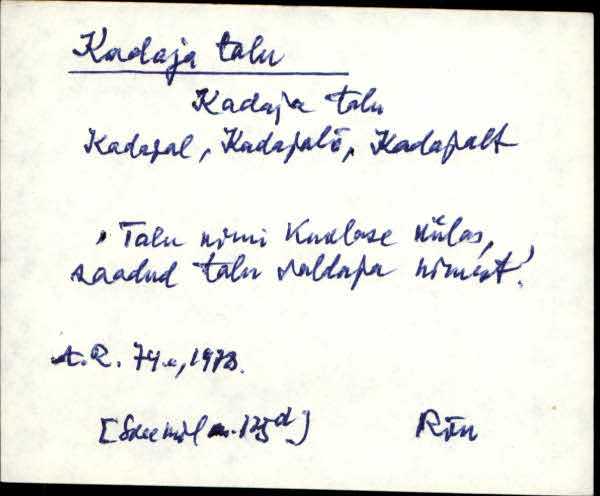 Kadaja talu
Kadaja talu
Kadajal, Kadajalõ, Kadajalt
'Talu nimi Kuulase külas,
saadud talu valdaja nimest'.
A.R. 74 a, 1978.
Rõu